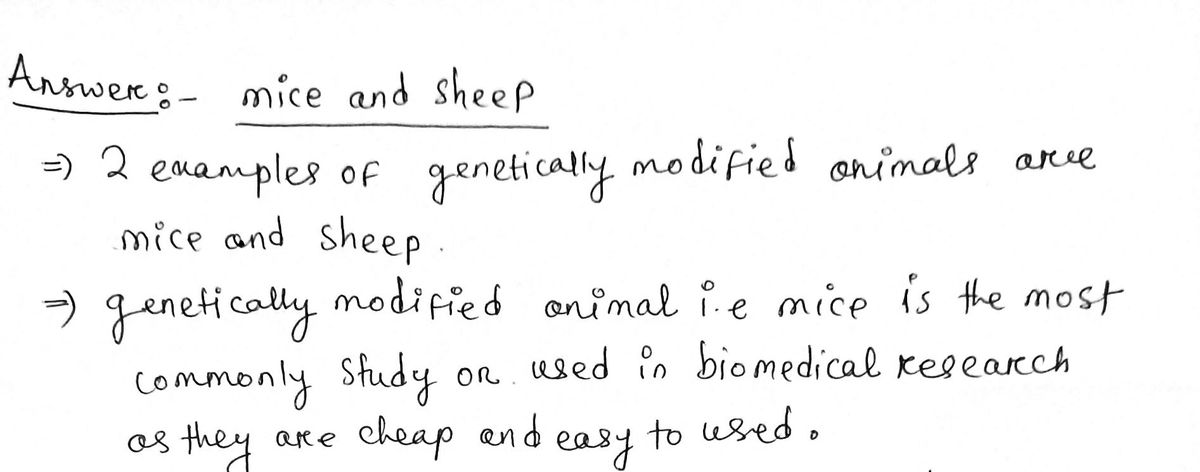 Answer :- mice and sheep
=) 2 examples of genetically modified animals are
mice and sheep.
=) genetically modified animal i.e mice is the most
commonly study or used in biomedical research
as they are cheap and easy to used.